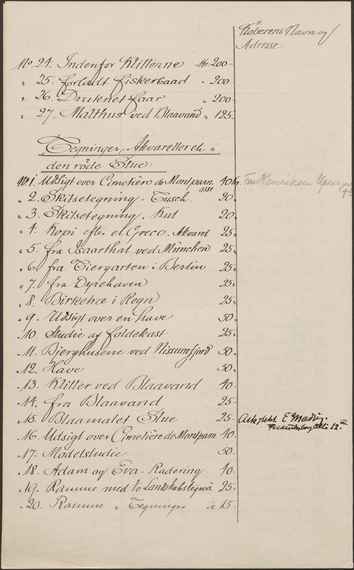 Køberens Navn og
Adresse
No 24. Indenfor Klitterne Kr 200
" 25. forladt fiskerbaad " 200
" 26. Druknet faar " 200
" 27. Malthus ved Blaavand " 125
Tegninger, Akvareller etc. i
den røde Stue
No 1. Udsigt over Cimetière de Montparnasse 40 Kr
" 2. Skitsetegning. Tusch 20
" 3. Skitsetegning. Kul 20
" 4. Kopi efter el Greco. Akvarel 25
" 5. fra Isarthal ved München 25
" 6. fra Tiergarten i Berlin 25
" 7. fra Dyrehaven 25
" 8. Birketræ i Regn 25
" 9. Udsigt over en Have 50
10. Studie af foldekast 25
" 11. Bjerghusene ved Nissumfjord 50
" 12. Have 50
" 13. Klitter ved Blaavand 40
" 14. fra Blaavand 25
" 15. Blaamalet Stue 25 Arkitekt E.
" 16. Udsigt over Cimetière de Montparn 40
" 17. Modelstudie 50
" 18. Adam og Eva. Radering 40
" 19. Ramme med to Landskabstegn 25
" 20. Ramme " Tegninger a 15